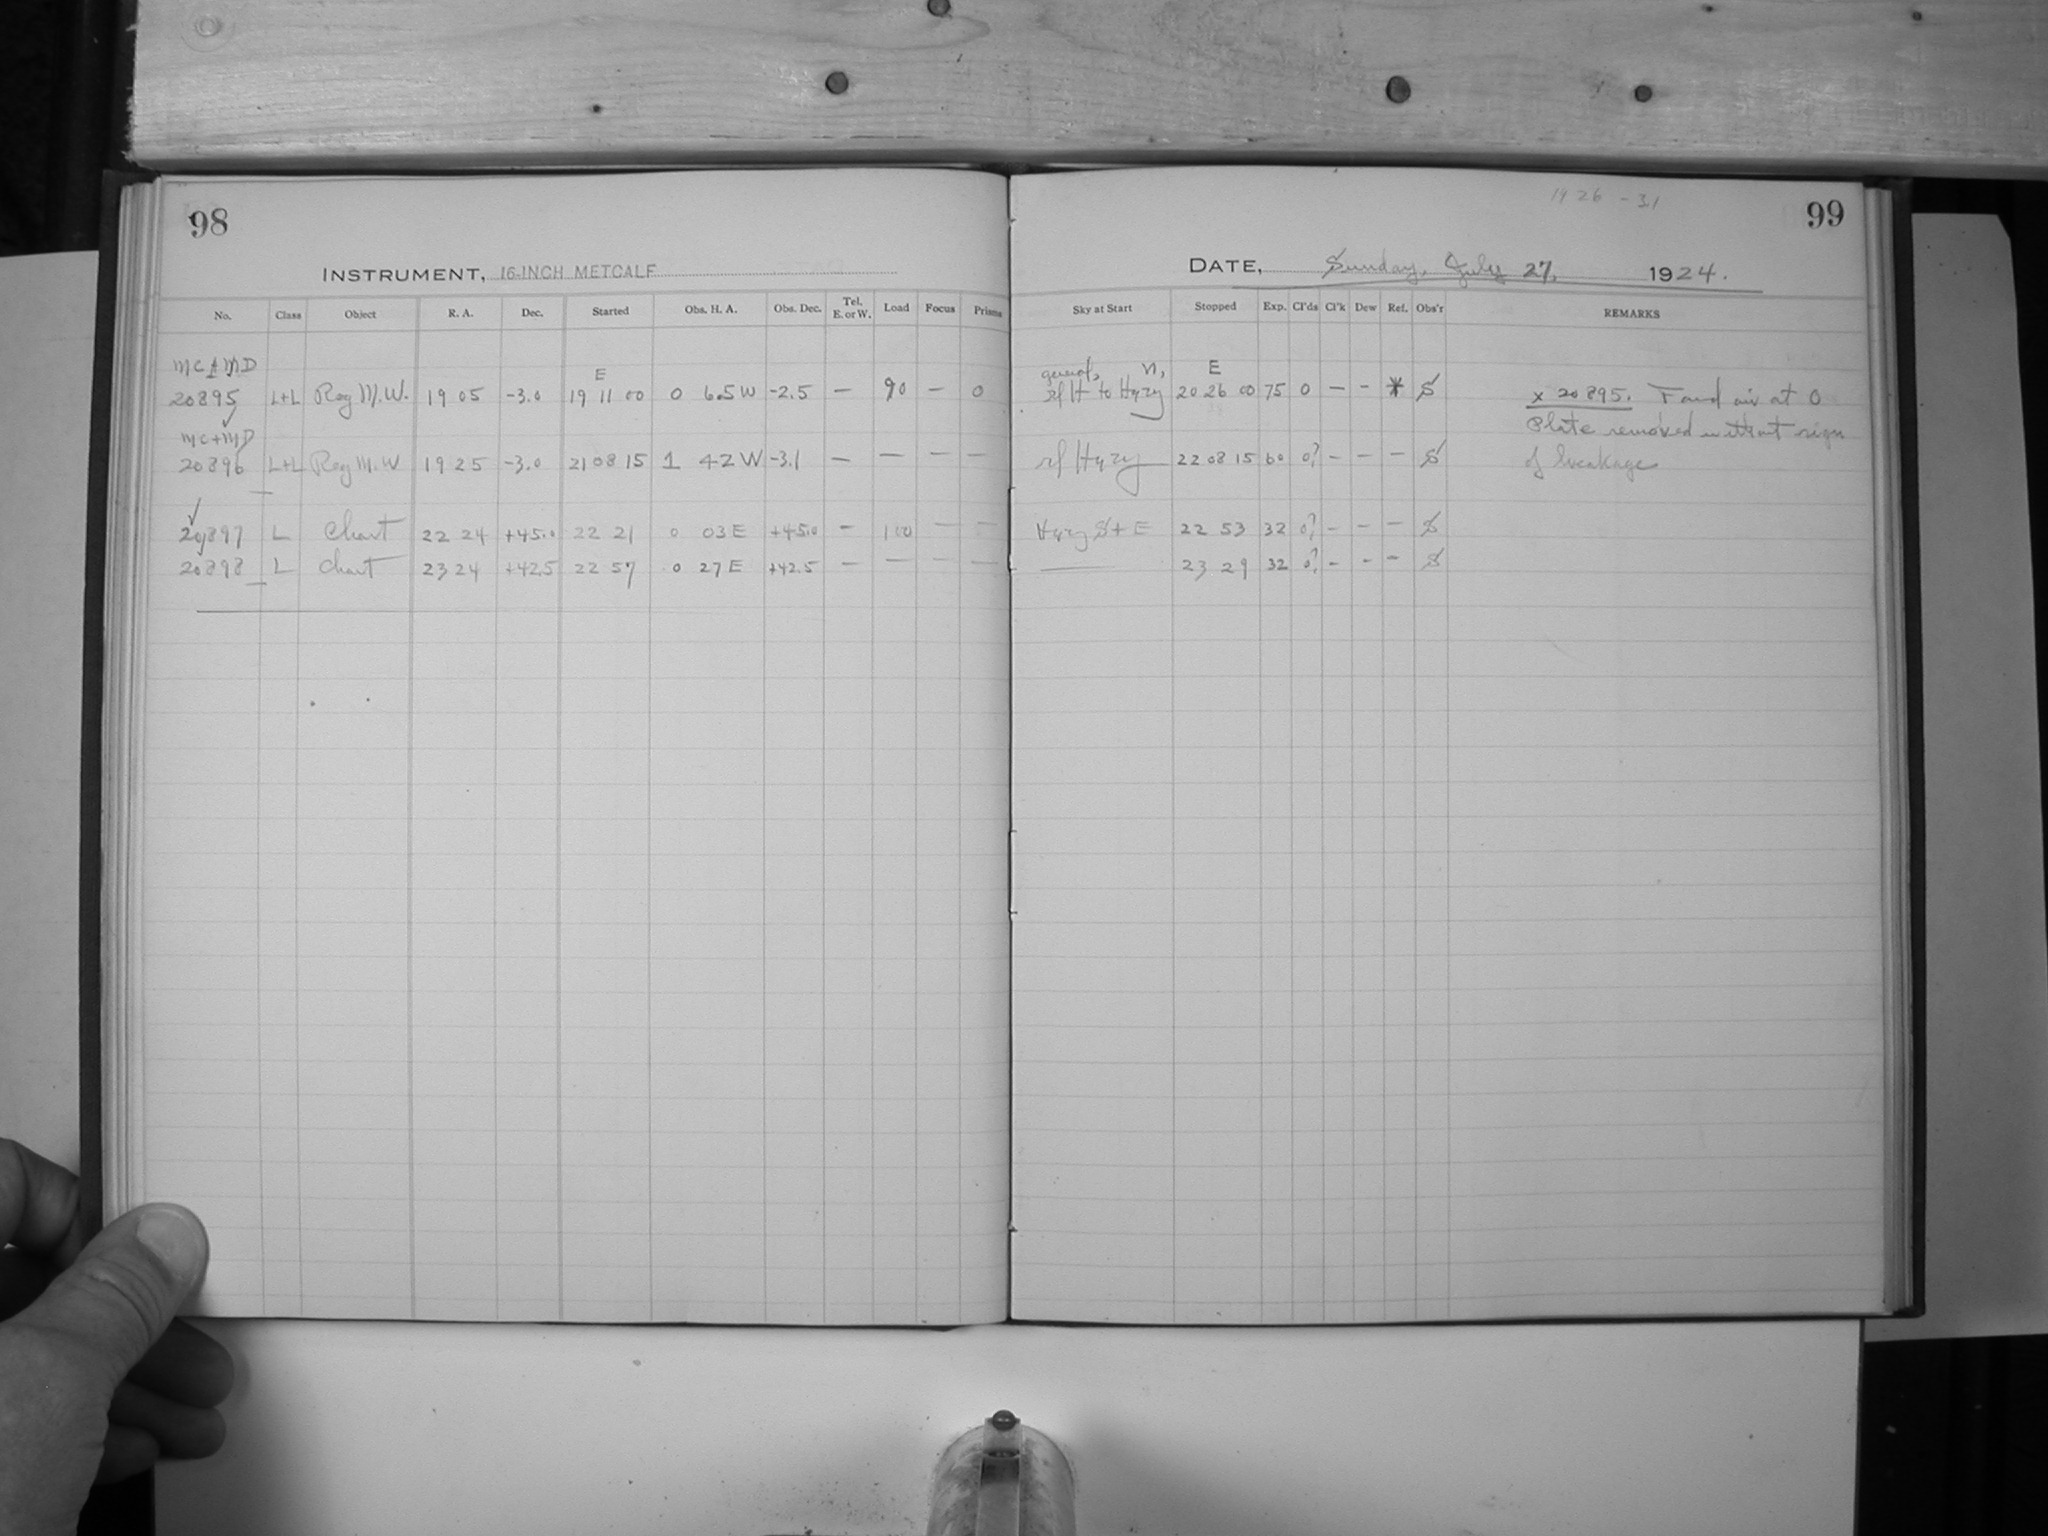 98
INSTRUMENT, 16-INCH METCALF
No. Class Object R. A. Dec. Started Obs. H. A. Obs. Dec. Tel. E. or W. Load Focus Prisms
MC + MD E
20895 L+L Reg M.W. 19 05 -3.0 19 11 00 0 6.5 W -2.5 — 90 — 0
MC + MD
20896 L+L Reg M.W 19 25 -3.0 21 08 15 1 42 W -3.1 — — — —
20897 L Chart 22 24 +45.0 22 21 0 03 E +45.0 — 100 — —
20898 L Chart 23 24 +42.5 22 57 0 27 E +42.5 — — — —
1926 - 31
99
DATE, Sunday, July 27, 1924.
Sky at Start Stopped Exp. Cl'ds Cl'k Dew Ref. Obs'r REMARKS
n, E
H to Hazy 20 26 00 75 0 — - * S x 20895. Found air at 0
Plate removed without sign
Hazy 22 08 15 60 0? - - - S of leakage
Hazy S + E 22 53 32 0? - - - S
—— 23 29 32 0? - - - S